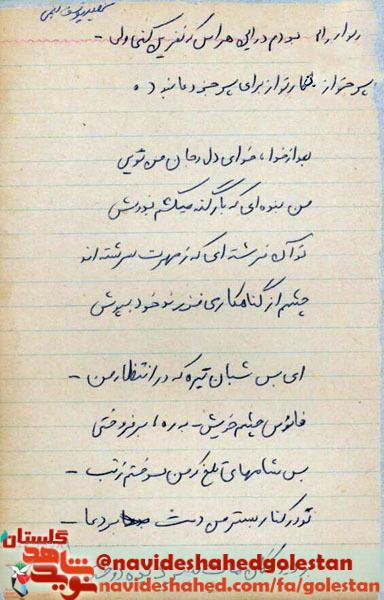 شهید یوسف
بودم در این هراس که نفرین کنی ولی -
پسر خود
بعد از خدا، خدای دل و جان من تویی
من بنده ای که بار گنه میکشم بدوش
تو آن فرشته ای که ز مهرت سرشته اند
چشم از گناهکاری فرزند خود بپوش
ای بس شبان تیره که در انتظار من -
فانوس چشم خویش به ره، بر فروختی
بس شامهای تلخ که من سوختم ز تب -
تو در کنار بستر من دست بر دعا -
گلستان
نوید شاهد
@navideshahedgolestan
navideshahed.com/fa/golestan